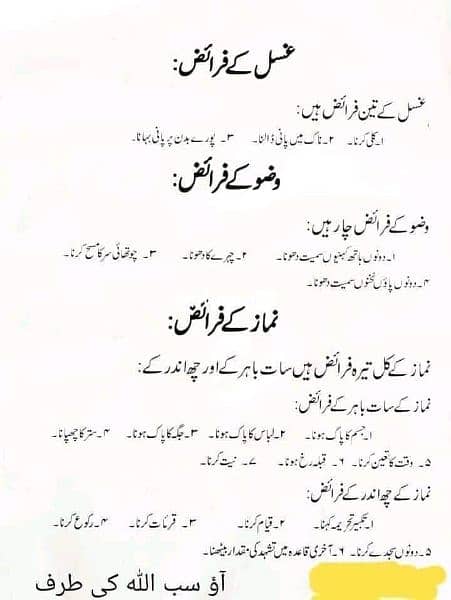 غسل کے فرائض:
غسل کے تین فرائض ہیں:
۱۔کلی کرنا۔ ۲۔ناک میں پانی ڈالنا۔ ۳۔ پورے بدن پر پانی بہانا۔
وضو کے فرائض:
وضو کے فرائض چار ہیں:
۱۔دونوں ہاتھ کہنیوں سمیت دھونا۔ ۲۔چہرے کا دھونا۔ ۳۔ چوتھائی سر کا مسح کرنا۔
۴۔دونوں پاؤں ٹخنوں سمیت دھونا۔
نماز کے فرائض:
نماز کے کل تیرہ فرائض ہیں سات باہر کے اور چھ اندر کے:
نماز کے سات باہر کے فرائض:
۱۔جسم کا پاک ہونا۔ ۲۔لباس کا پاک ہونا۔ ۳۔جگہ کا پاک ہونا۔ ۴۔ستر کا چھپانا۔
۵۔ وقت کا تعین کرنا۔ ۶۔ قبلہ رخ ہونا۔ ۷۔ نیت کرنا۔
نماز کے چھ اندر کے فرائض:
۱۔تکبیر تحریمہ کہنا۔ ۲۔قیام کرنا۔ ۳۔ قرءات کرنا۔ ۴۔رکوع کرنا۔
۵۔دونوں سجدے کرنا۔ ۶۔آخری قاعدہ میں تشہد کی مقدار بیٹھنا۔
آؤ سب اللہ کی طرف